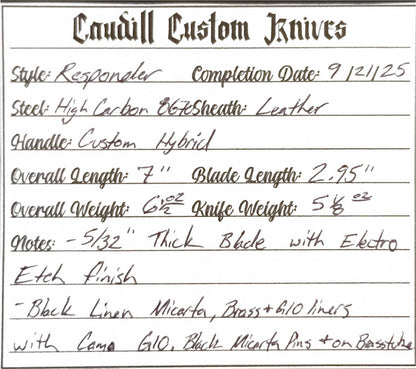 Caudill Custom Knives
Style: Responder Completion Date: 9/21/25
Steel: High Carbon 8670 Sheath: Leather
Handle: Custom Hybrid
Overall Length: 7" Blade Length: 2.95"
Overall Weight: 6 1/2 oz Knife Weight: 5 1/8 oz
Notes: - 5/32" Thick Blade with Electro
Etch finish
- Black Linen Micarta, Brass + G10 liners
with Camo G10. Black Micarta Pins + on Brass tube